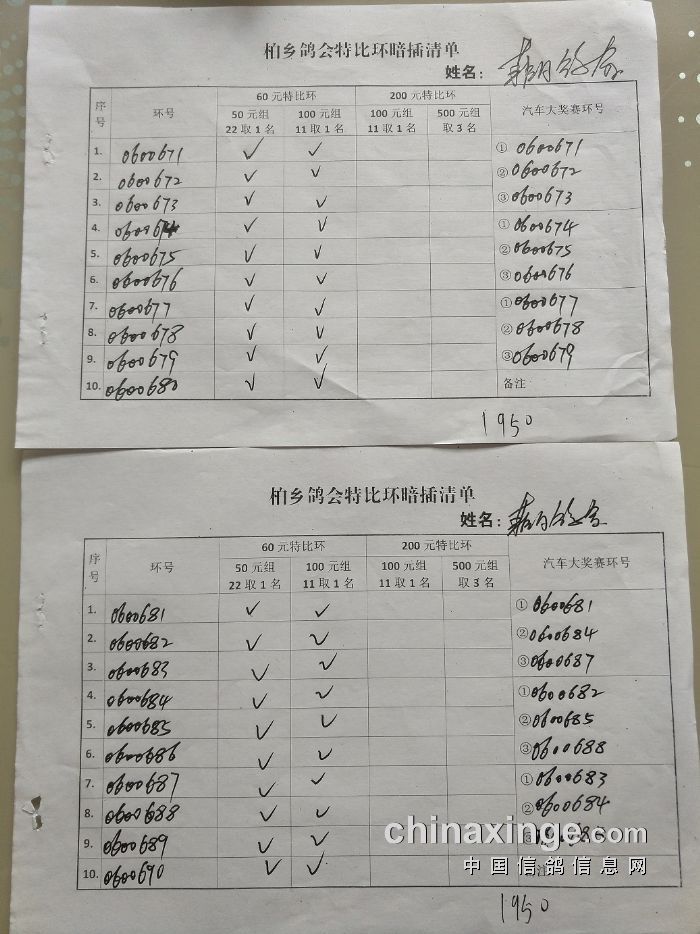 柏乡鸽会特比环暗插清单
姓名：
序号 环号 60元特比环 200元特比环 汽车大奖赛环号
50元组 22取1名 100元组 11取1名 100元组 11取1名 500元组 取3名
1. 0600671 ✓ ✓ ① 0600671
2. 0600672 ✓ ✓ ② 0600672
3. 0600673 ✓ ✓ ③ 0600673
4. 0600674 ✓ ✓ ① 0600674
5. 0600675 ✓ ✓ ② 0600675
6. 0600676 ✓ ✓ ③ 0600676
7. 0600677 ✓ ✓ ① 0600677
8. 0600678 ✓ ✓ ② 0600678
9. 0600679 ✓ ✓ ③ 0600679
10. 0600680 ✓ ✓ 备注
1950
柏乡鸽会特比环暗插清单
姓名：
序号 环号 60元特比环 200元特比环 汽车大奖赛环号
50元组 22取1名 100元组 11取1名 100元组 11取1名 500元组 取3名
1. 0600681 ✓ ✓ ① 0600681
2. 0600682 ✓ ✓ ② 0600684
3. 0600683 ✓ ✓ ③ 0600687
4. 0600684 ✓ ✓ ① 0600682
5. 0600685 ✓ ✓ ② 0600685
6. 0600686 ✓ ✓ ③ 0600688
7. 0600687 ✓ ✓ ① 0600683
8. 0600688 ✓ ✓ ② 0600684
9. 0600689 ✓ ✓ ③
10. 0600690 ✓ ✓ 注
chinaxinge.com
中国信鸽信息网
1950